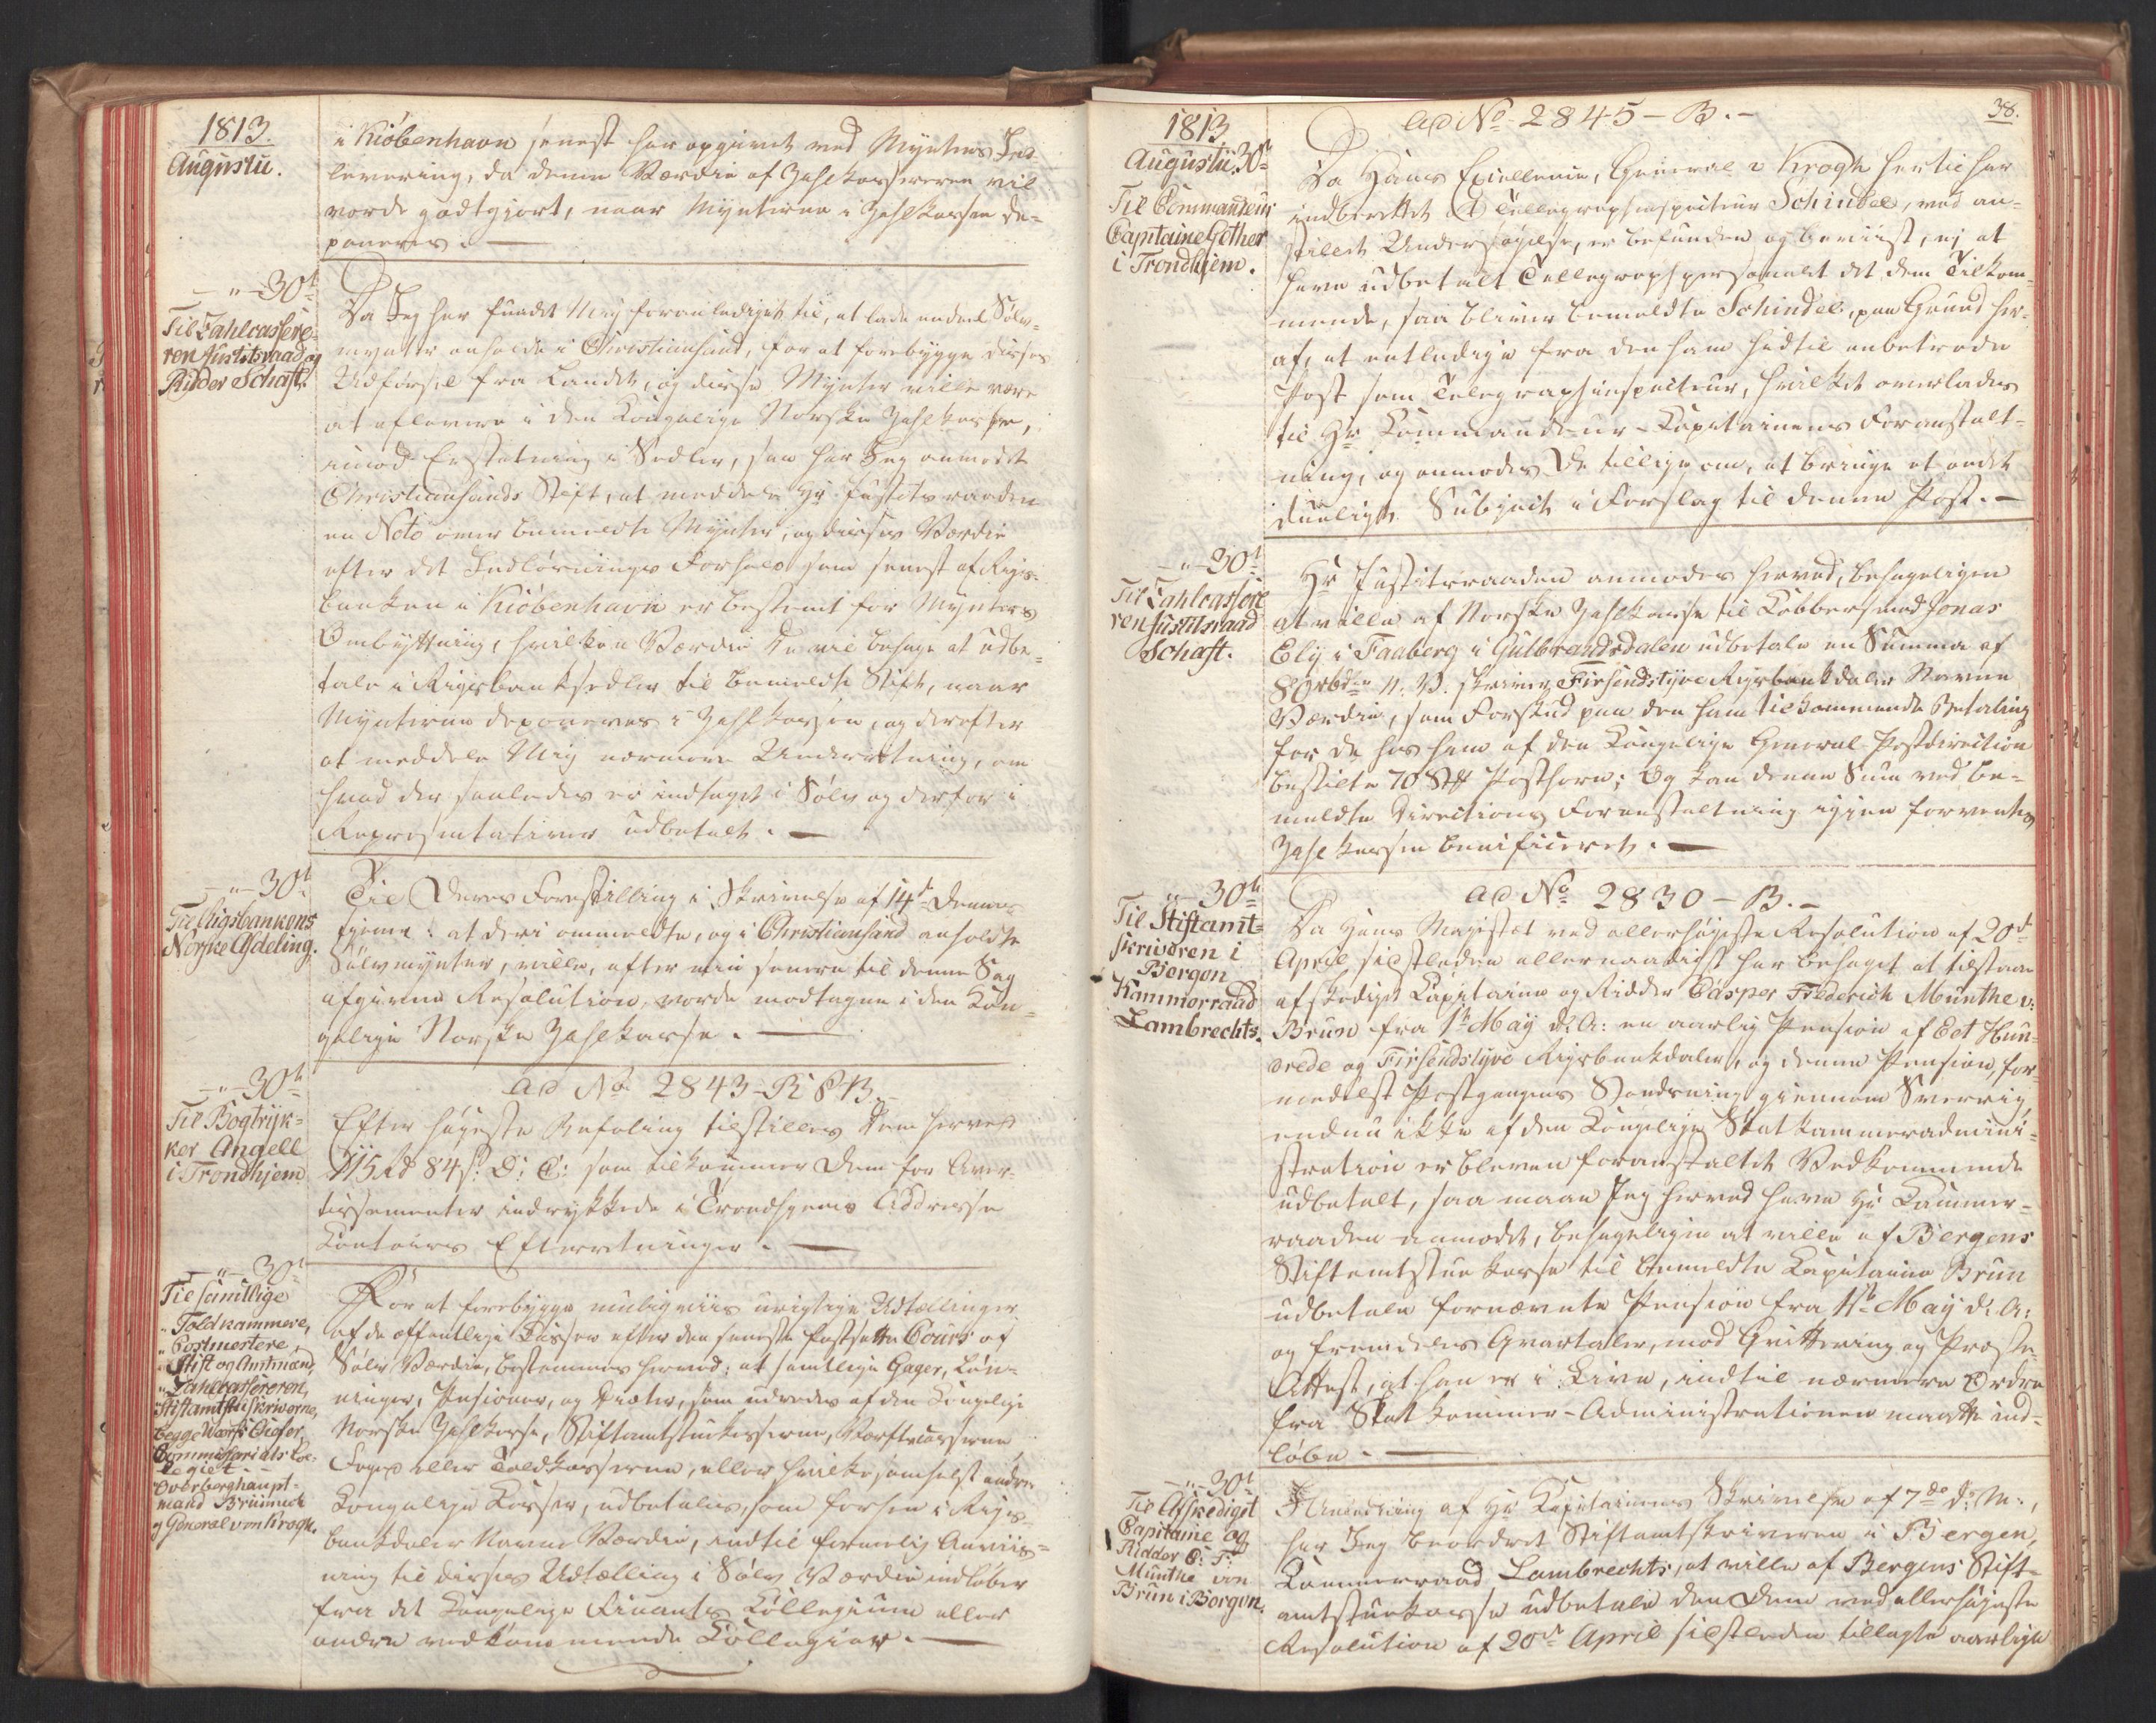 1813.
Augustii.
i Kiöbenhavn senest har opgivet ved Myntens Ind-
levering, da denne Værdie af Zahlkassereren vil
vorde godtgjort, naar Mynterne i Zahlkassen de-
poneres. —
— " — 30te
Til Zahlcassere-
ren Justitsraad og
Ridder Schaft.
Da Jeg har fundet Mig foranlediget til, at lade endeel Sölv-
mynter anholde i Christiansand, for at forebygge disses
Udförsel fra Landet, og disse Mynter ville være
at aflevere i den Kongelige Norske Zahlkasse,
imod Erstatning i Sedler, saa har Jeg anmodet
Christiansands Stift, at meddele Hr Justitsraaden
en Nota over bemeldte Mynter, og disses Værdie
efter det Indlösnings Forhold som senest af Rigs-
banken i Kiöbenhavn er bestemt for Mynters
Ombytning, hvilken Værdie De vil behage at udbe-
tale i Rigsbanksedler til bemeldte Stift, naar
Mynterne deponeres i Zahlkassen, og derefter
at meddele Mig nærmere Underretning, om
hvad der saaledes er indtaget i Sölv og derfor i
Repræsentativer udbetalt. —
— " — 30te
Til Rigsbankens
Norske Afdeling.
Til Deres Forestilling i Skrivelse af 14de denne
tjene: at deri ommeldte, og i Christiansand anholdte
Sölvmynter, ville, efter min senere til denne Sag
afgivne Resolution, vorde modtagne i den Kon-
gelige Norske Zahlkasse. —
— " — 30te
Til Bogtryk-
ker Angell
i Trondhjem
ad No 2843 - B & B.
Efter höjeste Befaling tilstilles Dem herved
115 Rd 84 s. D: C: som tilkommer Dem for Aver-
tissementer indrykkede i Trondhjems Addresse
Contoirs Efterretninger. —
— " — 30te
Til samtlige
" Toldkammere,
" Postmestere,
" Stift og Amtmænd,
" Zahlcassereren,
Stiftamtstueskriverne,
begge Værfts Chefer,
Commissariats Col-
legiet
Overberghaupt-
mand Brünnich
og General von Krogh.
For at forebygge muligviis urigtige Udtællinger
af de offentlige Casser efter den seneste fastsatte Cours af
Sölv Værdie, bestemmes herved: at samtlige Gager, Lön-
ninger, Pensioner, og Diæter, som udredes af den Kongelige
Norske Zahlkasse, Stiftamtstuekasserne, Værftscasserne
Foged eller Toldkasserne, eller hvilkesomhelst andre
Kongelige Casser, udbetales, som forhen i Rigs-
bankdaler Navne Værdie, indtil formelig Anviis-
ning til disses Udtælling i Sölv Værdie indlöber
fra det Kongelige Finants Collegium eller
andre vedkommende Collegier. —
38.
1813
Augustii 30te
Til Commandeur
Capitaine Gether
i Trondhjem.
ad No 2845 - B. -
Da Hans Excellence, General v Krogh hertil har
indberettet at Tellegraphinspecteur Schindel, ved an-
stillet Undersögelse, er befunden og beviist, ej at
have udbetalt Tellegraphpersonalet det dem Tilkom-
mende, saa bliver bemeldte Schindel, paa Grund her-
af, at entledige fra den ham hidtil anbetroede
Post som Telegraphinspecteur, hvilket overlades
til Hr Commandeur-Capitainens Foranstalt-
ning, og anmodes De tillige om, at bringe et andet
dueligt Subject i Forslag til denne Post. —
— " — 30te
Til Zahlcassere
ren Justitsraad
Schaft.
Hr Justitsraaden anmodes herved, behageligen
at ville af Norske Zahlkasse til Kobbersmed Jonas
Ely i Faaberg i Gulbrandsdalen udbetale en Summa af
80 rbdr N. V. skriver Firsindstyve Rigsbankdaler Navne
Værdie, som Forskud paa den ham tilkommende Betaling
for de hos ham af den Kongelige General Postdirection
bestilte 70 Stk Posthorn; Og kan denne Sum ved be-
meldte Directions Foranstaltning igjen forventes
Zahlkassen bonificeret. —
" 30te
Til Stiftamt-
skriveren i
Bergen
Kammerraad
Lambrechts.
ad No 2830 - B. -
Da Hans Majestæt ved allerhöjeste Resolution af 20de
April sidstleden allernaadigst har behaget at tilstaae
afskediget Capitaine og Ridder Casper Frederich Münthe v:
Brun fra 1ste May d: A: en aarlig Pension af Eet Hun-
drede og Firsindstyve Rigsbankdaler, og denne Pension, for-
medelst Postgangens Standsning giennem Sverrig,
endnu ikke af den Kongelige Skatkammeradmini-
stration er bleven foranstaltet Vedkommende
udbetalt, saa maae Jeg herved have Hr Kammer-
raaden anmodet, behageligen at ville af Bergens
Stiftamtstue Kasse til Anmeldte Capitaine Brun
udbetale fornævnte Pension fra 1ste May d: A:
og fremdeles Qvartaler, mod Qvittering og Præste
Attest, at han er i Live, indtil nærmere Ordre
fra Skatkammer-Administrationen maatte ind-
löbe. —
— " — 30te
Til Afskediget
Capitaine og
Ridder C: F:
Münthe von
Brun i Bergen.
I Anledning af Hr Capitainens Skrivelse af 7de d: M:,
har Jeg beordret Stiftamtskriveren i Bergen,
Kammerraad Lambrechts, at ville af Bergens Stift-
amtstuekasse udbetale den Dem ved allerhöjeste
Resolution af 20de April sidstleden tillagte aarlige